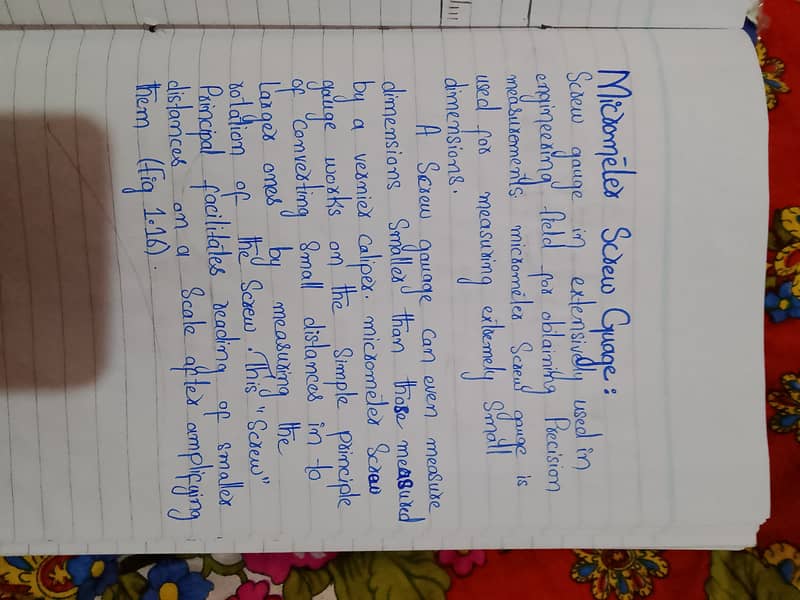 Micrometer Screw Guage:
Screw gauge in extensively used in
engineering field for obtaining Precision
measurements micrometer Screw gauge is
used for measuring extremely Small
dimensions.
A Screw gauage can even measure
dimensions Smaller than those measurd
by a vernier caliper. micrometer Screw
gauge works on the Simple principle
of Converting Small distances in to
Larger ones by measuring the
rotation of the Screw. This "Screw"
Principal facilitates reading of smaller
distances on a Scale after amplifying
them (fig 1.16).